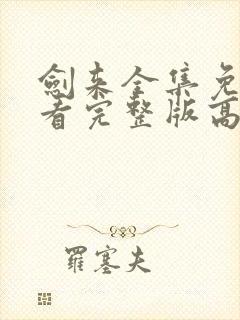 劍来全集免
看完整版高
羅塞夫